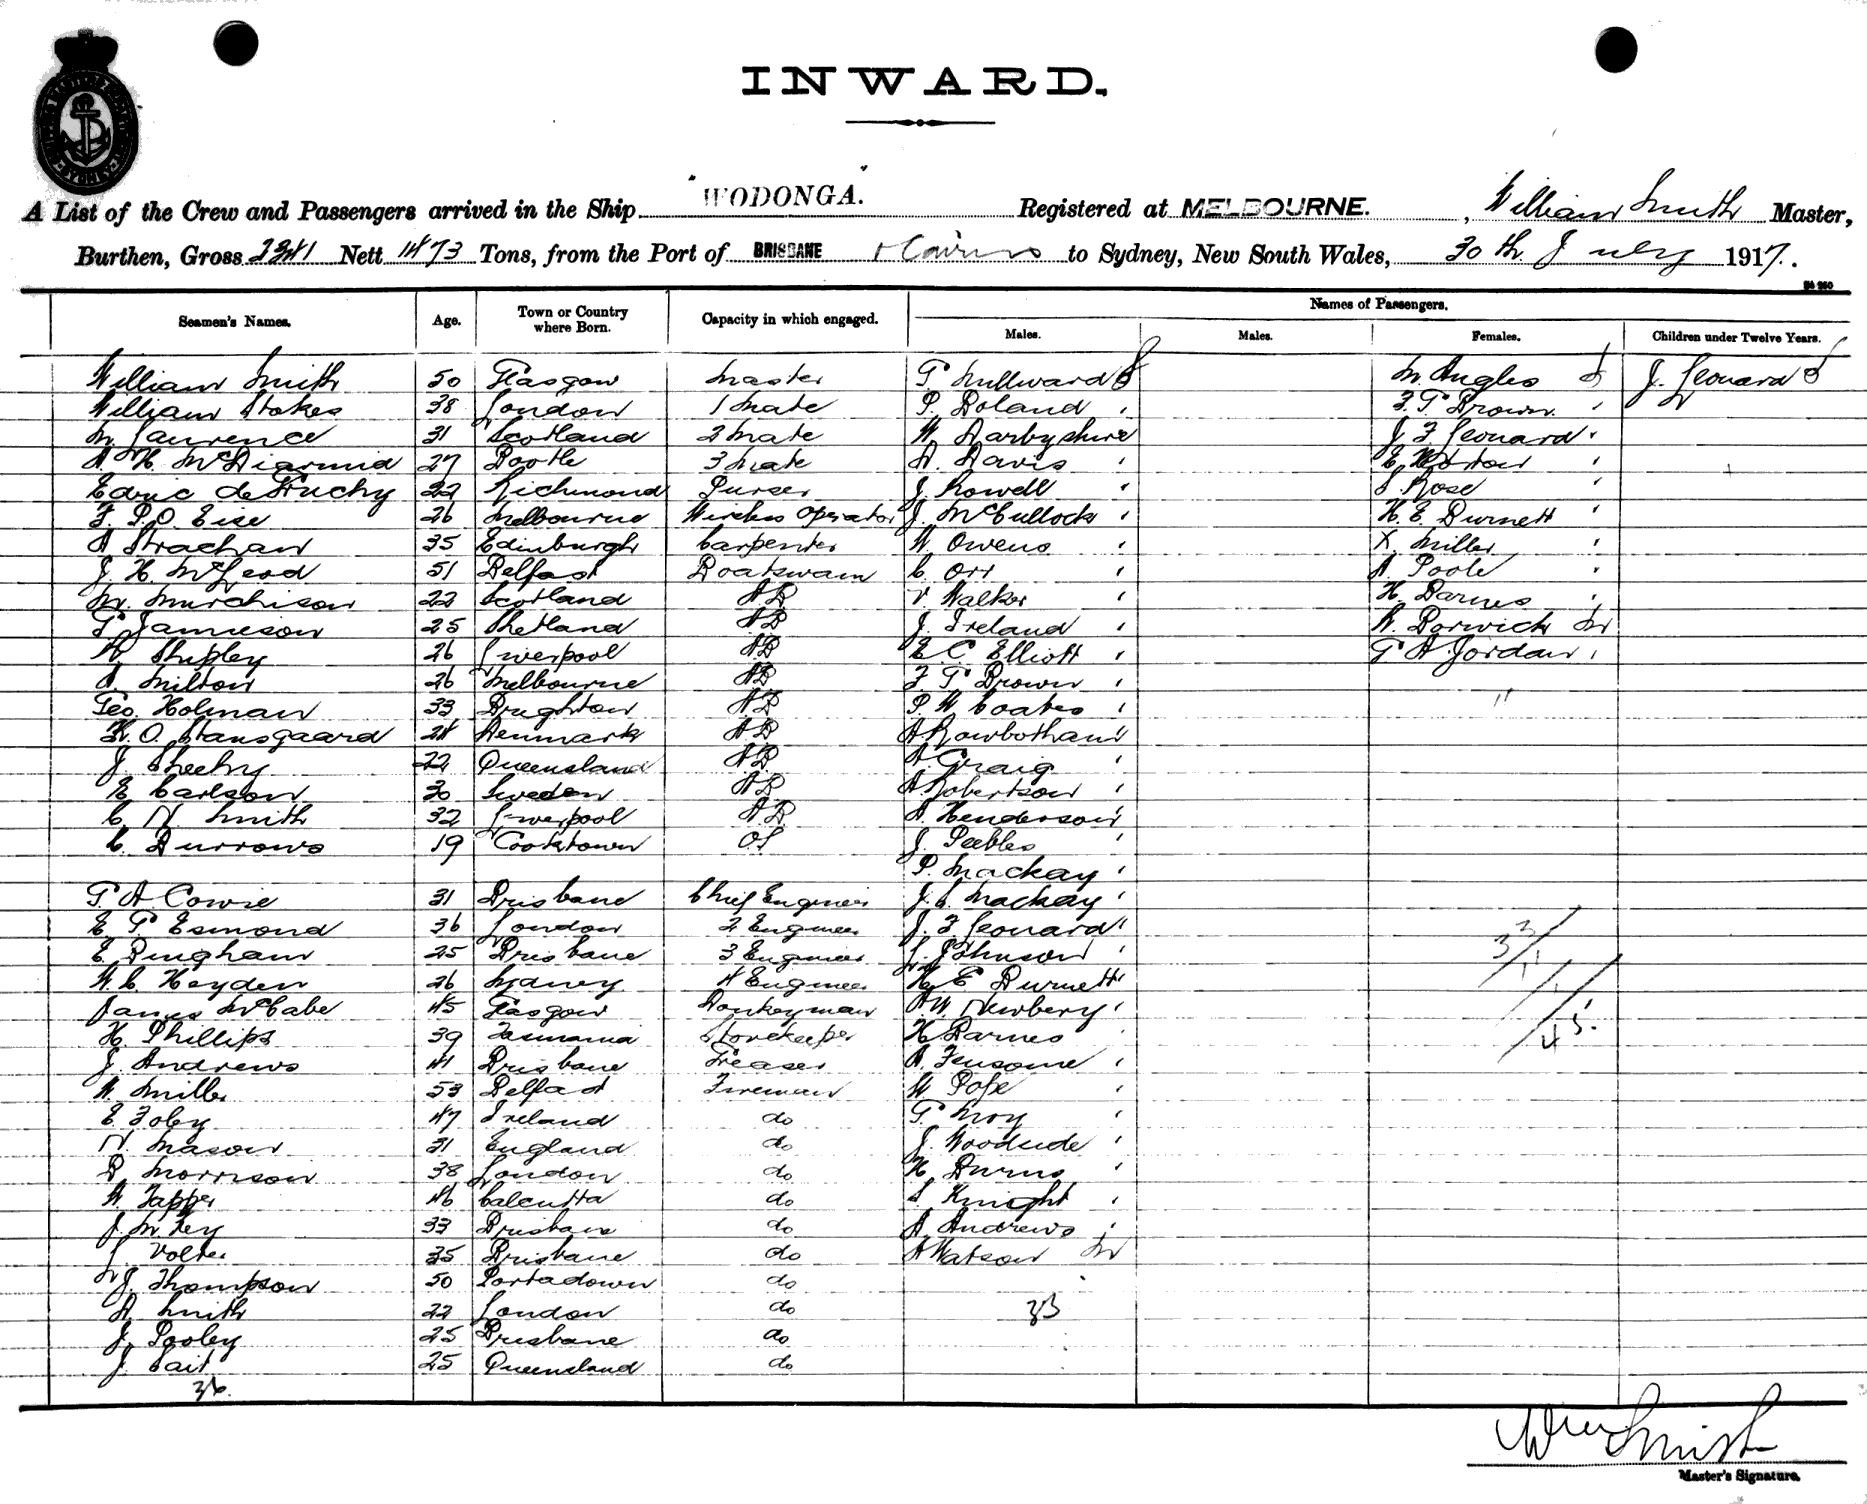 INWARD.
A List of the Crew and Passengers arrived in the Ship "WODONGA." Registered at MELBOURNE. , William Smith Master,
Burthen, Gross 2341 Nett 1473 Tons, from the Port of BRISBANE & Cairns to Sydney, New South Wales, 30th July 1917.
Names of Passengers.
Seamen's Names. Age. Town or Country where Born. Capacity in which engaged. Males. Males. Females. Children under Twelve Years.
William Smith 50 Glasgow Master G Mullward M Angles J. Leonard
William Stokes 38 London 1 Mate P. Boland F. G Brown
M Laurence 31 Scotland 2 Mate W Darbyshire J F Leonard
A. H. McDiarmid 27 Bootle 3 Mate A. Davis E Horton
Edric deGruchy 22 Richmond Purser J Rowell S Rose
F. P. O. Eise 26 Melbourne Wireless Operator J. McCullock H. E. Burnett
A Strachan 35 Edinburgh Carpenter W Owens Miller
J. H. McLeod 51 Belfast Boatswain C. Orr A. Poole
M. Murchison 22 Scotland AB V Walker H. Barnes
G Jamieson 25 Shetland AB J. Ireland A. Borwick
W Shipley 26 Liverpool AB E C. Elliott G A Jordan
A. Milton 26 Melbourne AB F G Brown
Geo. Holman 33 Brighton AB P W Coates
K. O. Hansgaard 24 Denmark AB A Rowbotham
J Sheehy 22 Queensland AB A Craig
E Carlson 30 Sweden AB A Robertson
C. N. Smith 32 Liverpool AB A. Henderson
C. Burrows 19 Cooktown OS J. Peebles
P. Mackay
G. A Cowie 31 Brisbane Chief Engineer J. C. Mackay
E G Esmond 36 London 2 Engineer J. F Leonard
E Bingham 25 Brisbane 3 Engineer L. Johnson
W. C. Heyden 26 Sydney 4 Engineer H. E Burnett
James McCabe 45 Glasgow Donkeyman A. W. Newbery
H. Phillips 39 Tasmania Storekeeper H Barnes
J. Andrews 41 Brisbane Greaser A. Fensome
W Miller 53 Belfast Fireman W Pope
E Foley 47 Ireland do G Moy
N. Mason 31 England do J. Woodside
D Morrison 38 London do H Burns
W Tapper 46 Calcutta do S Knight
J. M. Key 33 Brisbane do A. Andrews
L Volter 35 Brisbane do A Watson
W J. Thompson 50 Portadown do
A Smith 22 London do
J. Pooley 25 Brisbane do
J. Cait 25 Queensland do
33
11
1
45.
33
36.
Wm Smith
Master's Signature.